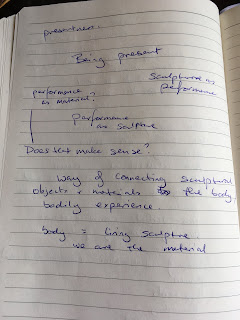 presentness.
Being present
sculpture as
performance
performance
as material?
performance
as sculpture
Does that make sense?
way of connecting sculptural
objects & materials to the body,
bodily experience
body = living sculpture.
we are the material